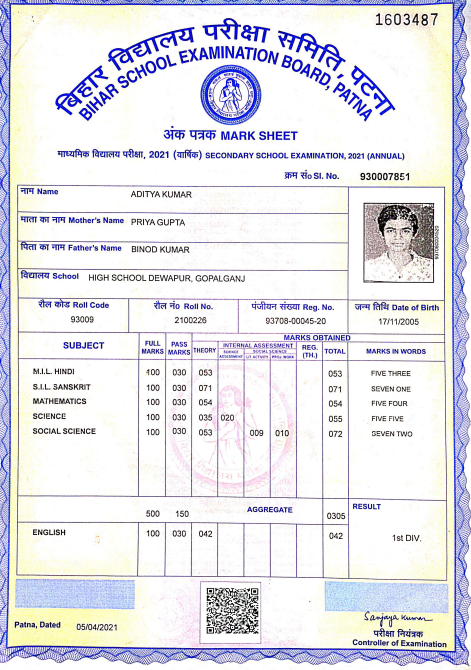 1603487
बिहार विद्यालय परीक्षा समिति, पटना
BIHAR SCHOOL EXAMINATION BOARD, PATNA
अंक पत्रक MARK SHEET
माध्यमिक विद्यालय परीक्षा, 2021 (वार्षिक) SECONDARY SCHOOL EXAMINATION, 2021 (ANNUAL)
क्रम सं० Sl. No. 930007851
नाम Name ADITYA KUMAR
माता का नाम Mother's Name PRIYA GUPTA
पिता का नाम Father's Name BINOD KUMAR
विद्यालय School HIGH SCHOOL DEWAPUR, GOPALGANJ
रौल कोड Roll Code रौल नं० Roll No. पंजीयन संख्या Reg. No. जन्म तिथि Date of Birth
93009 2100226 93708-00045-20 17/11/2005
MARKS OBTAINED
SUBJECT FULL MARKS PASS MARKS THEORY INTERNAL ASSESSMENT REG. (TH.) TOTAL MARKS IN WORDS
SCIENCE ASSESSMENT SOCIAL SCIENCE LIT ACTIVITY PROJ WORK
M.I.L. HINDI 100 030 053 053 FIVE THREE
S.I.L. SANSKRIT 100 030 071 071 SEVEN ONE
MATHEMATICS 100 030 054 054 FIVE FOUR
SCIENCE 100 030 035 020 055 FIVE FIVE
SOCIAL SCIENCE 100 030 053 009 010 072 SEVEN TWO
500 150 AGGREGATE 0305 RESULT
ENGLISH 100 030 042 042 1st DIV.
Patna, Dated 05/04/2021
Sanjaya Kumar
परीक्षा नियंत्रक
Controller of Examination